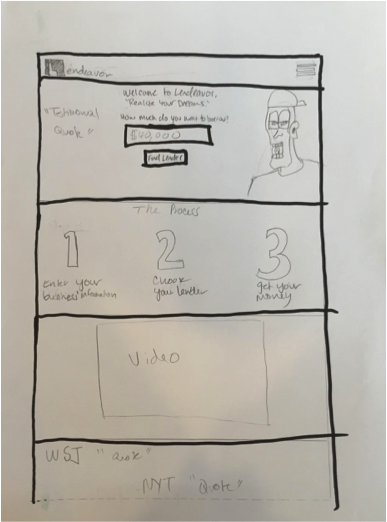 Lendeavor
Welcome to Lendeavor,
"Realize Your Dreams."
"Testimonial
Quote"
How much do you want to borrow?
$40,000
Find Lender
The Process
1
2
3
Enter your
business information
Choose
your lender
get your
money
Video
WSJ "Quote"
NYT "Quote"